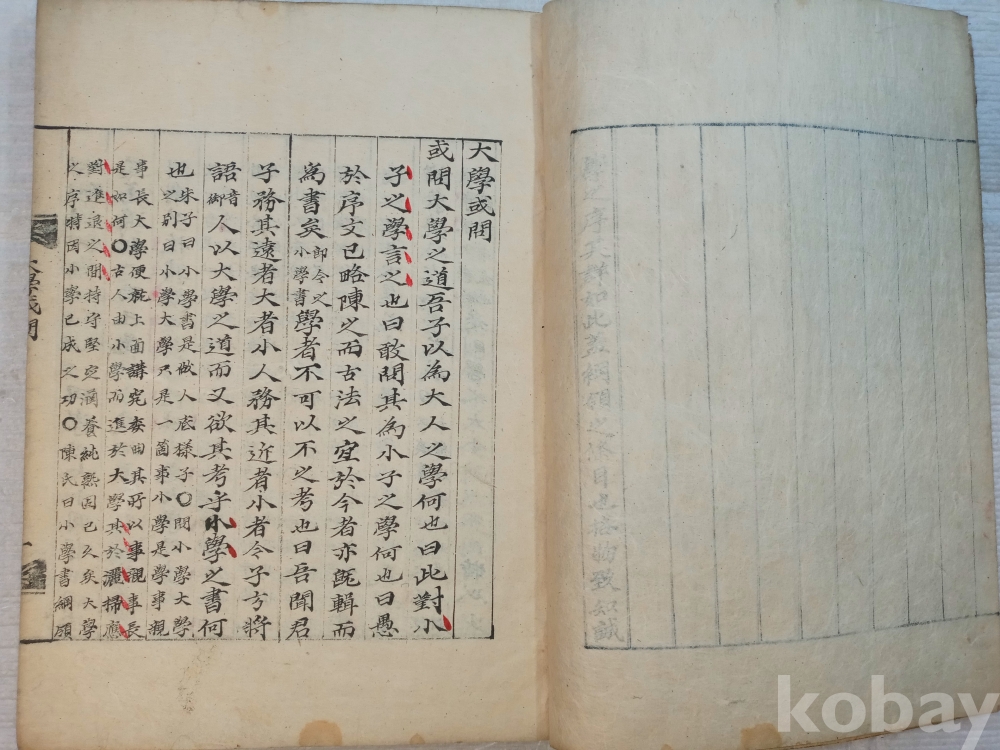 大學或問
或問大學之道吾子以為大人之學何也曰此對小
子之學言之也曰敢問其為小子之學何也曰愚
於序文已略陳之而古法之宜於今者亦旣輯而
爲書矣
卽今之
小學書
學者不可以不之考也曰吾聞君
子務其遠者大者小人務其近者小者今子方將
語
音
御
人以大學之道而又欲其考乎小學之書何
也
朱子曰小學書是做人底樣子○問小學大學
之別曰小學大學只是一箇事小學是學事親
事長大學便就上面講究委曲其所以事親事長
是如何○古人由小學而進於大學其於灑掃應
對進退之間持守堅定涵養純熟固已久矣大學
之序特因小學已成之功○陳氏曰小學書綱領
大學或問
kobay